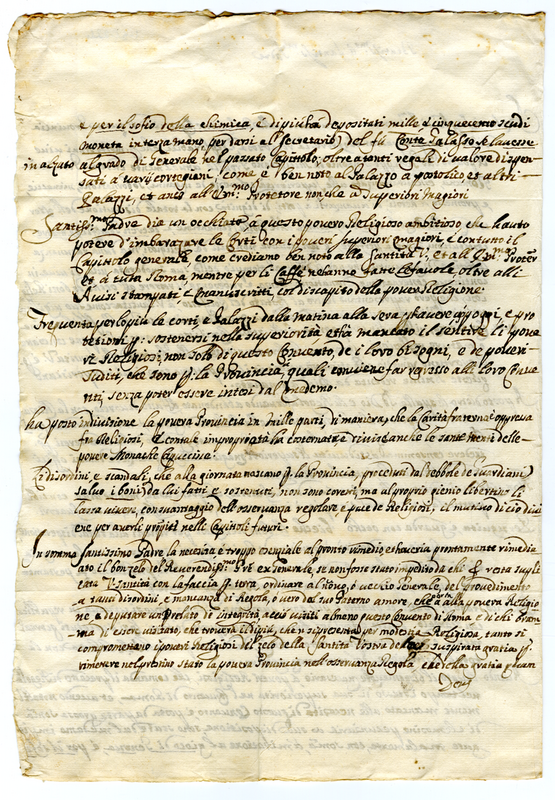 e per il sofio della Scimica, e di più ha depositati mille e cinquecento scudi
moneta in terza mano per darsi al secretario del fù Conte Galasso se lavesse
in aiuto al grado di Generale nel passato Capitolo; oltre a tanti regali di valore dispen-
sati a varij cortegiani, come è ben noto al Palazzo apostolico et altri
Palazzi, et anco all' Em.mo Protetore non che a Superiori Magiori
Santiss.mo Padre dia un occhiata, a questo povero Religioso ambitioso che hauto
potere d'imbarazare le Corti con i poveri superiori magiori, e con tutto il
Capitolo generale come crediamo ben noto alla Santità V. et all Em.mo Protet.
et a tutta Roma mentre per li Caffè ne hanno fatte le favole, oltre alli
Avisi stampati, e manuscritti, col discapito della povera Religione
Frequenta per lo più le corti, e Palazzi dalla matina alla sera p. havere appoggi, e pro
tesioni p. sostenersi nella superiorità, et hà mancato il sentire li pove
ri Religiosi, non solo di questo Convento, de i loro bisogni, e de poveri
suditi, che sono p. la Provincia, quali conviene far regresso alli loro Conve
nti, senza poter essere intesi dal medemo.
ha posto in divisione la povera Provincia in mille parti di maniera, che la Carità fraterna è oppressa
fra Religiosi, e con tale impropriatà ha contornate e divise anche le sante menti delle
povere Monache Capuccine.
Li disordini, e scandali, che alla giornata nascano p. la Provincia, preceduti dal debbole de Guardiani
salvo i boni, da lui fatti e sostenuti, non sono coretti, ma al proprio gienio libertino li
lassa vivere, con svantaggio dell'osservanza regolare e pace de Religiosi, il mutivo di cio divi
ene per averli propitij nelli Capitoli futuri.
In somma santissimo Padre la materia è troppo esenziale al pronto rimedio et haveria prontamente rimedia
ato il bon zelo del Reverendiss.mo Pre ex Generale, se non fosse stato impedito da che p. resta supli
cata V. Santità con la faccia p. terra, ordinare al novo, o vecchio Generale, del provedimento
a tanti disordini, e mancanza di Regola, o vero dal suo Paterno amore, che porta alla povera Religio
ne, e deputare un Prelato di integrità, acciò visiti almeno questo Convento di Roma, e di chi bram-
ma d'essere visitato, che troverà di più, che n. si presenta per modestia Religiosa, tanto si
compromettano i poveri Religiosi del zelo della Santità Vostra della suspirata gratia p.
rimetere nel primo stato la povera Provincia nell'osservanza Regola che della gratia p. cam
Deus